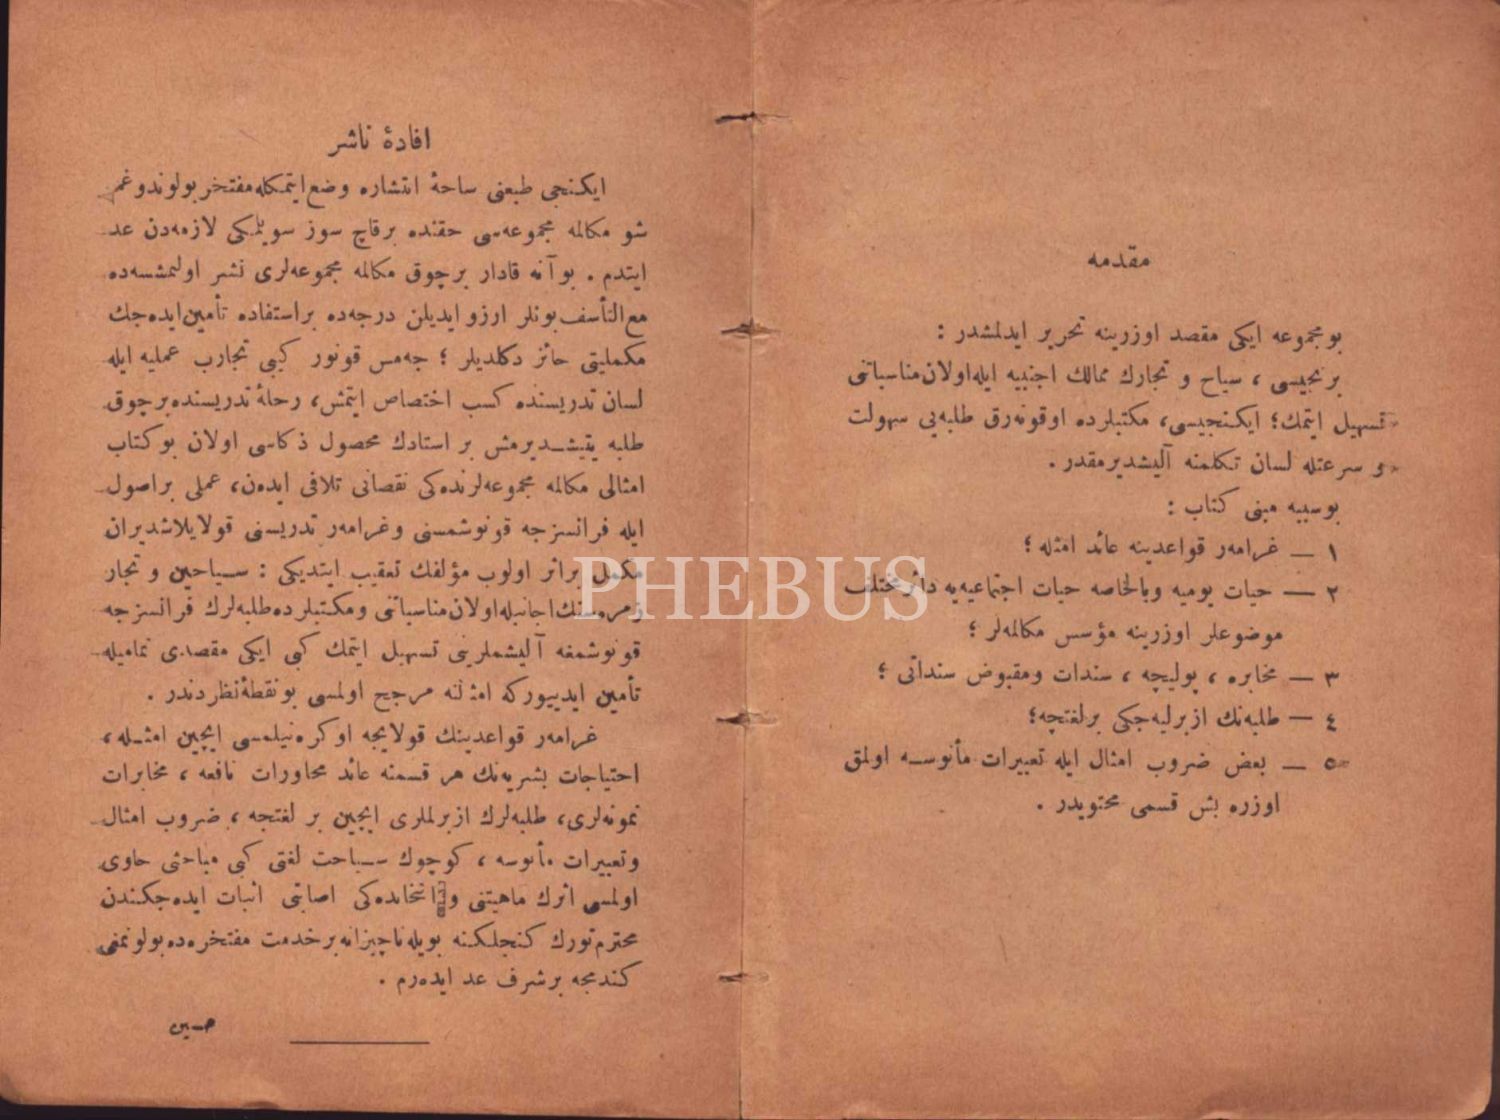 مقدمه
بو مجموعه ایكی مقصد اوزرینه تحریر ایدلمشدر :
برنجیسی ، سیاح و تجارك ممالك اجنبیه ایله اولان مناسباتنی
تسهیل ایتمك؛ ایكنجیسی، مكتبلرده اوقونه‌رق طلبه‌یی سهولت
و سرعتله لسان تكلمنه آلیشدیرمقدر .
بوسببه مبنی كتاب :
١ — غرامه‌ر قواعدینه عائد امثله ؛
٢ — حیات یومیه وبالخاصه حیات اجتماعیه‌یه دائر مختلف
موضوعلر اوزرینه مؤسس مكالمه‌لر ؛
٣ — مخابره ، پولیچه ، سندات ومقبوض سنداتی ؛
٤ — طلبه‌نك ازبرلیه‌جكی برلغتچه؛
٥ — بعض ضروب امثال ایله تعبیرات مأنوسه اولمق
اوزره بش قسمی محتویدر .
افادهٔ ناشر
ایكنجی طبعنی ساحهٔ انتشاره وضع ایتمكله مفتخر بولوندوغم
شو مكالمه مجموعه‌سی حقنده برقاچ سوز سویلمكی لازمه‌دن عد
ایتدم . بو آنه قادار برچوق مكالمه مجموعه‌لری نشر اولنمشسه‌ده
مع التأسف بونلر ارزو ایدیلن درجه‌ده براستفاده تأمین ایده‌جك
مكملیتی حائز دكلدیلر ؛ جه‌مس قونور كبی تجارب عملیه ایله
لسان تدریسنده كسب اختصاص ایتمش، رحلهٔ تدریسنده برچوق
طلبه یتیشدیرمش بر استادك محصول ذكاسی اولان بو كتاب
امثالی مكالمه مجموعه‌لرنده‌كی نقصانی تلافی ایده‌ن، عملی براصول
ایله فرانسزجه قونوشمسنی وغرامه‌ر تدریسنی قولایلاشدیران
مكمل براثر اولوب مؤلفك تعقیب ایتدیكی : سیاحین و تجار
زمره‌سنك اجانبله اولان مناسباتنی ومكتبلرده طلبه‌لرك فرانسزجه
قونوشمغه آلیشملرینی تسهیل ایتمك كبی ایكی مقصدی تمامیله
تأمین ایدییوركه امثالنه مرجح اولمسی بونقطهٔ نظردندر .
غرامه‌ر قواعدینك قولایجه اوكره‌نیلمسی ایچین امثله ،
احتیاجات بشریه‌نك هر قسمنه عائد محاورات نافعه ، مخابرات
نمونه‌لری، طلبه‌لرك ازبرلملری ایچین بر لغتچه ، ضروب امثال
وتعبیرات مأنوسه ، كوچوك سیاحت لغتی كبی مباحثی حاوی
اولمسی اثرك ماهیتنی و انتخابده‌كی اصابتی اثبات ایده‌جكندن
محترم تورك كنجلكنه بویله ناچیزانه برخدمت مفتخره‌ده بولونمنی
كندمجه برشرف عد ایده‌رم .
حسین
PHEBUS